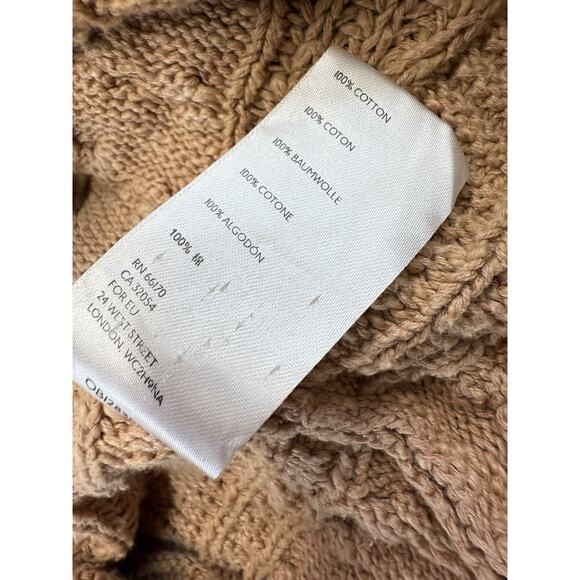 100% COTTON
100% COTON
100% BAUMWOLLE
100% COTONE
100% ALGODÓN
100% 棉
RN 66170
CA 32054
FOR EU
24 WEST STREET
LONDON, WC2H9NA